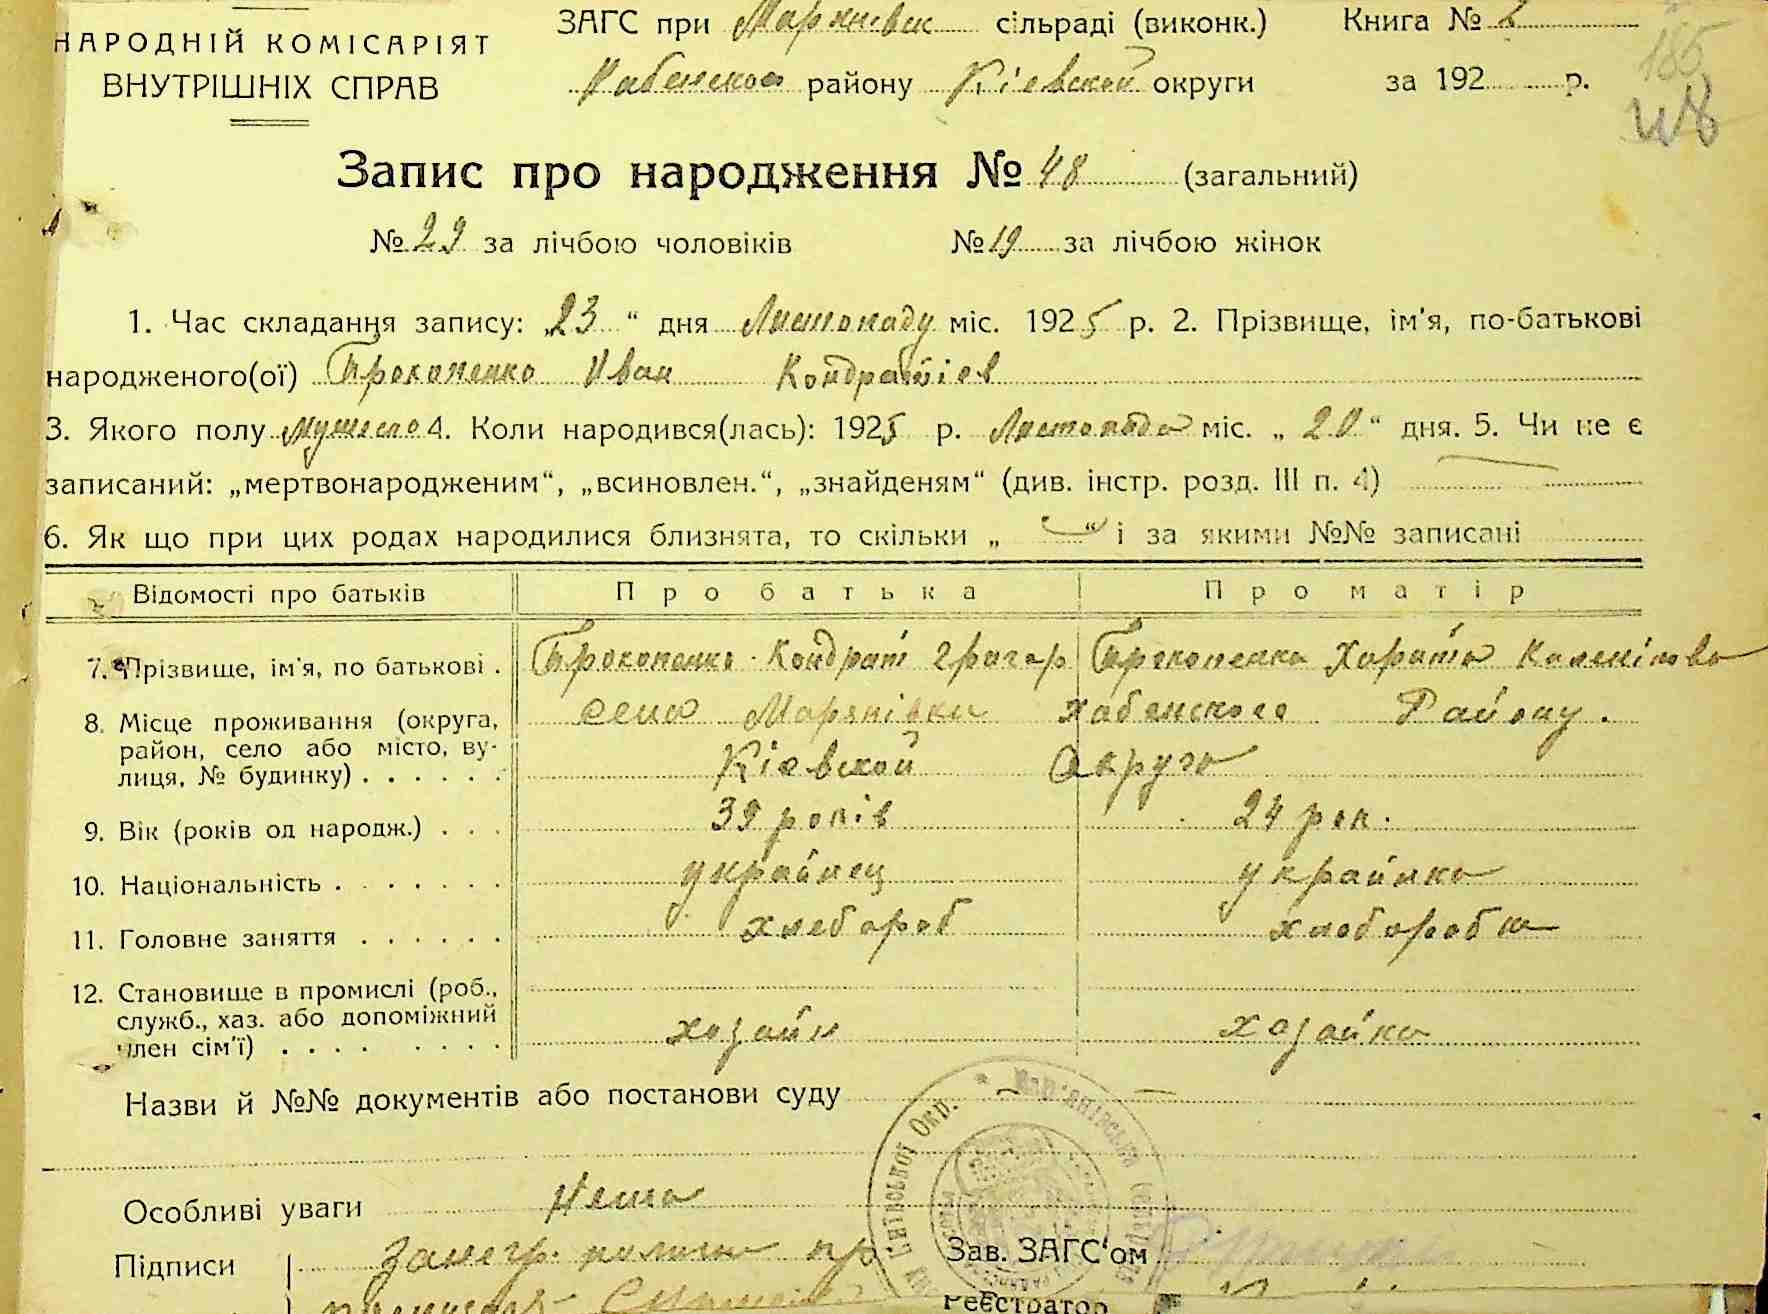 НАРОДНІЙ КОМІСАРІЯТ
ВНУТРІШНІХ СПРАВ
ЗАГС при сільраді (виконк.) Книга №
району Кіевской округи за 192 р.
185
48
Запис про народження № 48 (загальний)
№ 29 за лічбою чоловіків № 19 за лічбою жінок
1. Час складання запису: 23 “ дня Листопаду міс. 1925 р. 2. Прізвище, ім'я, по-батькові
народженого(ої) Прокопенко Иван Кондратіев
3. Якого полу 4. Коли народився(лась): 1925 р. Листопада міс. „ 20 “ дня. 5. Чи не є
записаний: „мертвонародженим“, „всиновлен.“, „знайденям“ (див. інстр. розд. III п. 4)
6. Як що при цих родах народилися близнята, то скільки „ “ і за якими №№ записані
Відомості про батьків Про батька Про матір
7. Прізвище, ім'я, по батькові . Прокопенко Кондрат Григор Прокопенко
8. Місце проживання (округа, село Марянівки хабенского Району.
район, село або місто, ву-
лиця, № будинку) . . . . . . Кіевской Округа
9. Вік (років од народж.) . . . 39 років 24 рок.
10. Національність . . . . . . . украйнец украйнка
11. Головне заняття . . . . . . хлебороб хлеборобка
12. Становище в промислі (роб.,
служб., хаз. або допоміжний
член сім'ї) . . . . . . . . хозайн хозайка
Назви й №№ документів або постанови суду
Особливі уваги Нема
Підписи Зав. ЗАГС'ом
Реєстратор